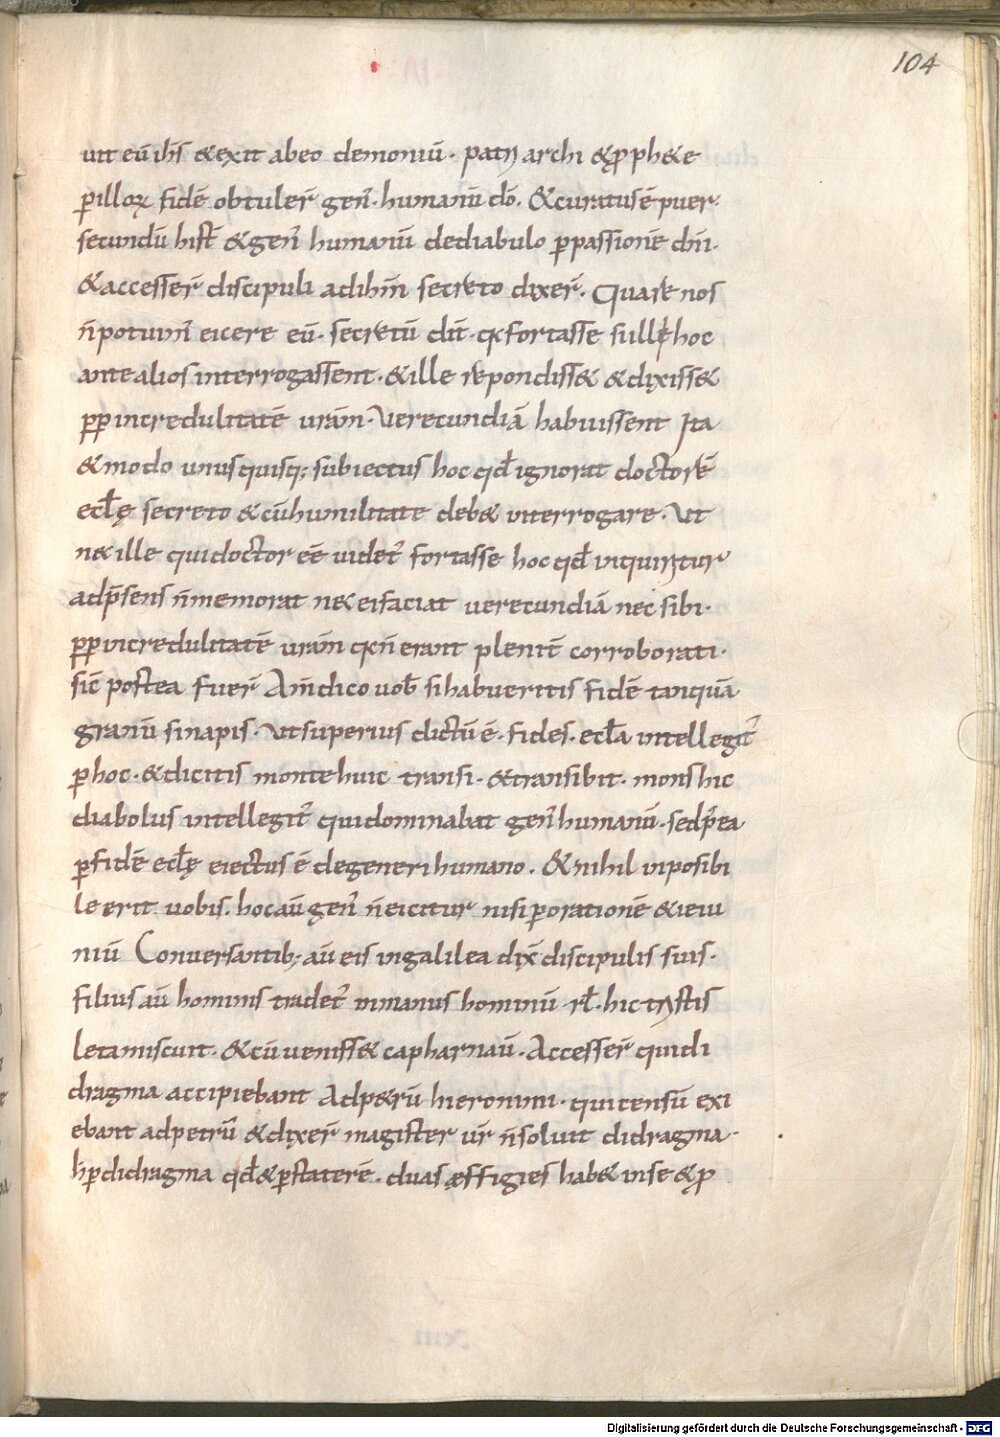 104
uit eū ihs̄ & exiit abeo demoniū· patriarchi & ꝓph&e
ꝑ illoꝝ fidē obtuler̄ gen̄· humanū dō· & curatus ē puer·
secundū hist̄ & gen̄ humanū de diabulo ꝑ passionē dn̄i·
& accesser̄ discipuli ad ihm̄ secreto dixer̄· Quare nos
n̄ potuim̄ eicere eū· secretū dn̄t· qa fortasse si ille hoc
ante alios interrogassent· & ille repondiss& & dixiss&
ꝓp incredulitatē uram̄· Verecundiā habuissent Ita
& modo unusquisq; subiectus hoc qd̄ ignorat doctorē
eclę̄ secreto & cū humilitate deb& interrogare· Ut
nec ille qui doctor eē uidet̄ fortasse hoc qd̄ inquiritur
ad p̄sens n̄ memorat nec ei faciat uerecundiā nec sibi·
ꝓp incredulitatē uram̄ qa n̄ erant plenit̄ corroborati·
sic̄ postea fuer̄ Am̄ dico uob̄ si habueritis fidē tanquā
granū sinapis· Ut superius dictū ē· fides· ecl̄a intellegit̄
ꝑ hoc· & dicitis monte huic transi· & transibit· mons hic
diabolus intellegit̄ qui dominabat gen̄ humanū· sed p̄ea
ꝑ fidē eclę̄ eiectus ē de generi humano· & nihil inposibi
le erit uobis· hoc aū gen̄ n̄ eicitur nisi ꝑ orationē & ieiu
niū Conuersantib; aū eis in galilea dix̄ discipulis suis·
filius aū hominis tradet̄ in manus hominū· rl̄· hic tristis
leta miscuit· & cū ueniss& capharnaū· Accesser̄ qui di
dragma accipiebant Ad p&rū hieronimi· qui censū exi
ebant ad petrū & dixer̄ magister ur̄ n̄ soluit didragma·
h̄ ꝑ didragma qd̄ & ꝑ staterē· duas æffigies hab& in se & ꝓ
Digitalisierung gefördert durch die Deutsche Forschungsgemeinschaft - DFG